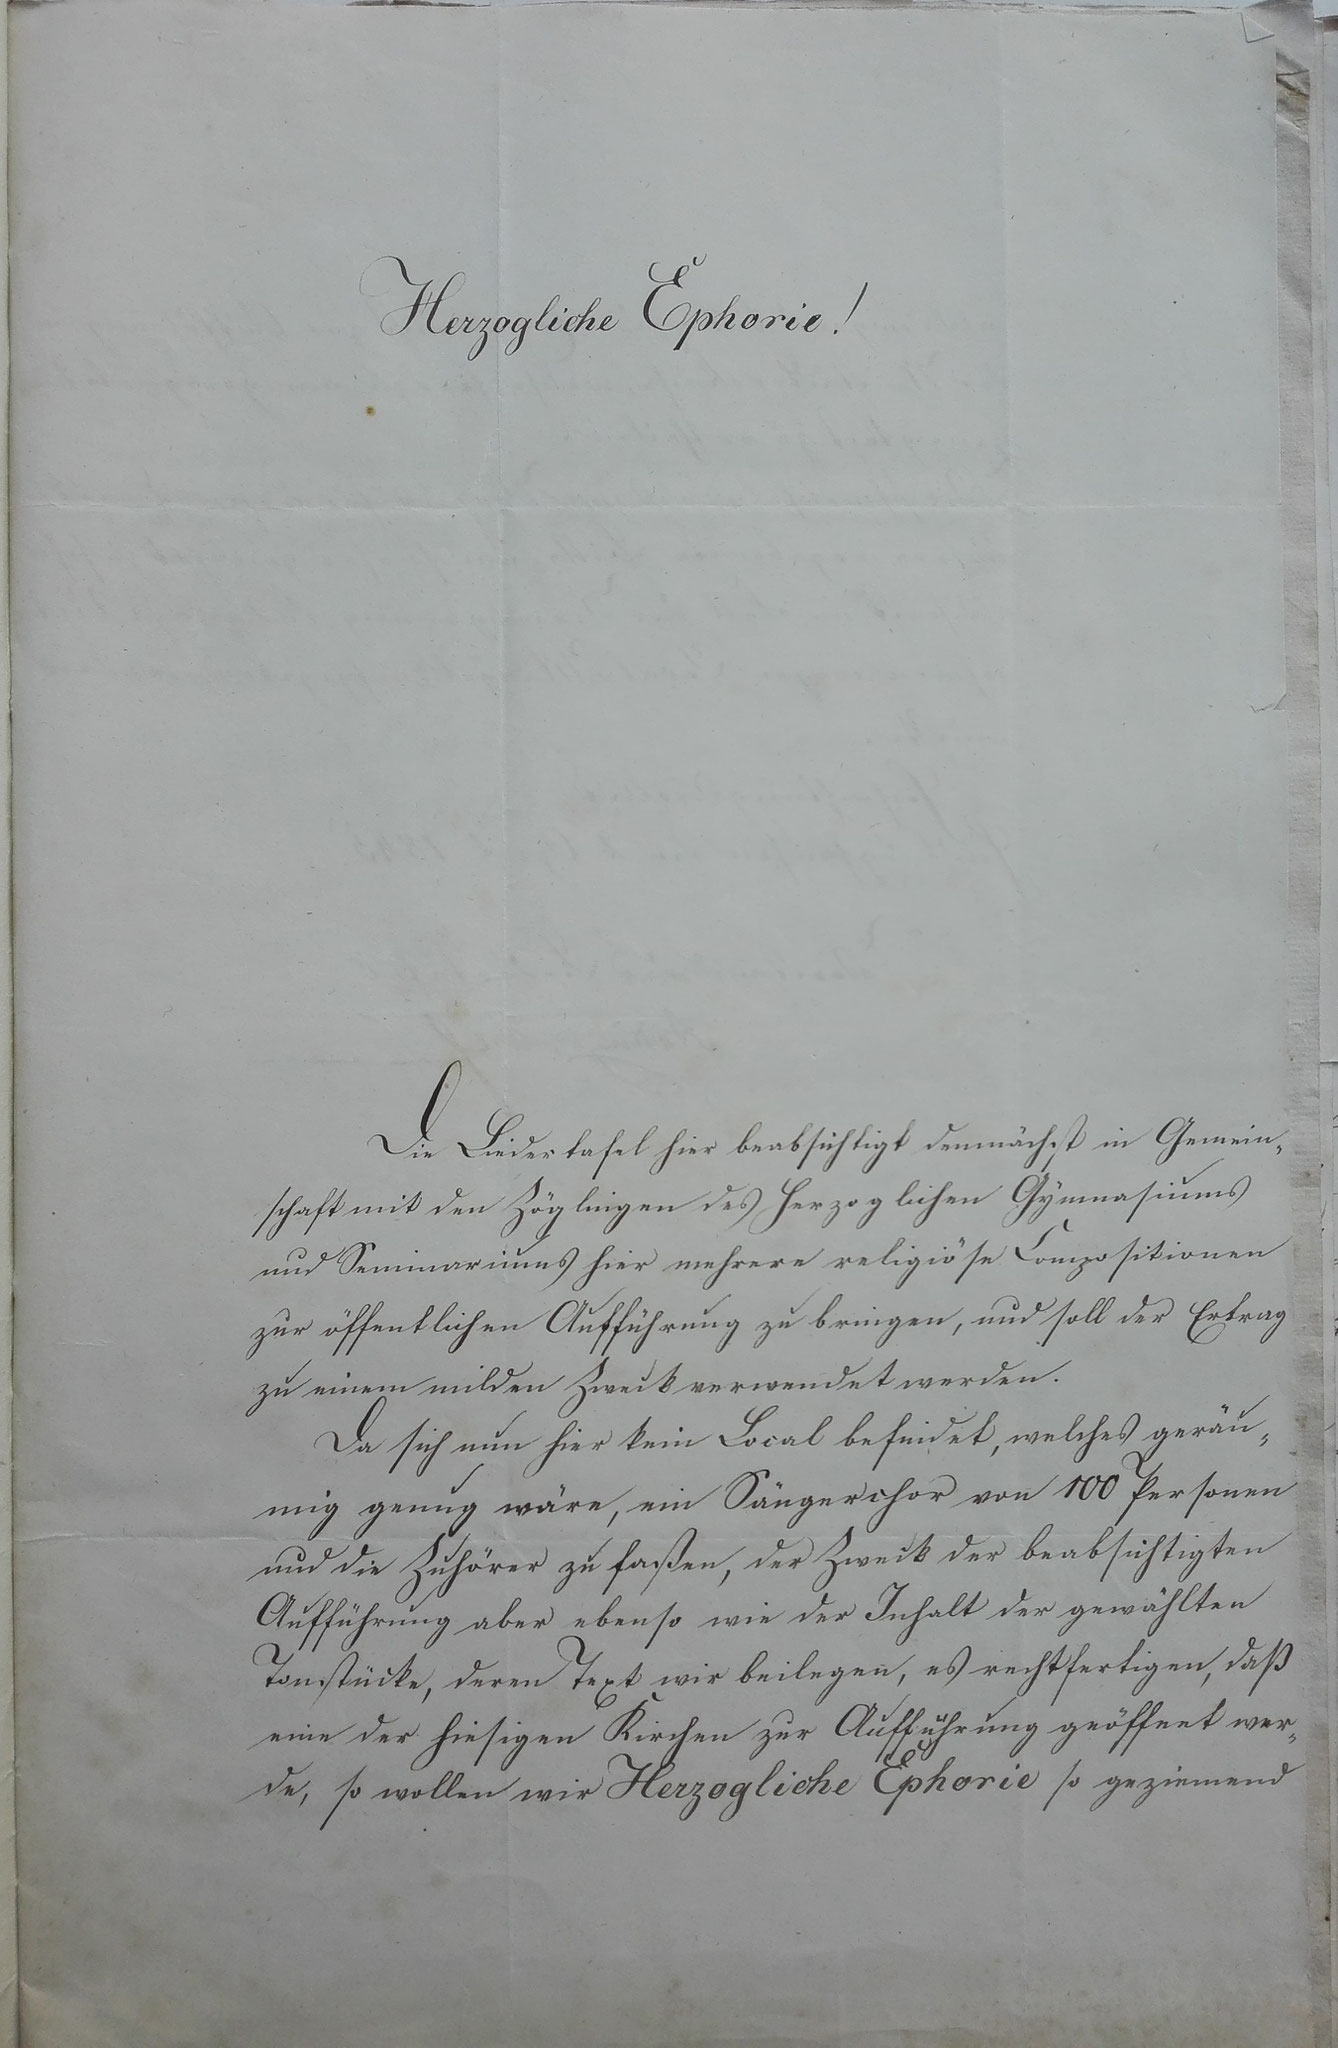 Herzogliche Ephorie!
Die Liedertafel hier beabsichtigt demnächst in Gemein-
schaft mit den Zöglingen des Herzoglichen Gymnasiums
und Seminariums hier mehrere religiöse Compositionen
zur öffentlichen Aufführung zu bringen, und soll der Ertrag
zu einem milden Zweck verwendet werden.
Da sich nun hier kein Local befindet, welches geräu-
mig genug wäre, ein Sängerchor von 100 Personen
und die Zuhörer zu faßen, der Zweck der beabsichtigten
Aufführung aber ebenso wie der Inhalt der gewählten
Tonstücke, deren Text wir beilegen, es rechtfertigen, daß
eine der hiesigen Kirchen zur Aufführung geöffnet wer-
de, so wollen wir Herzogliche Ephorie so geziemend